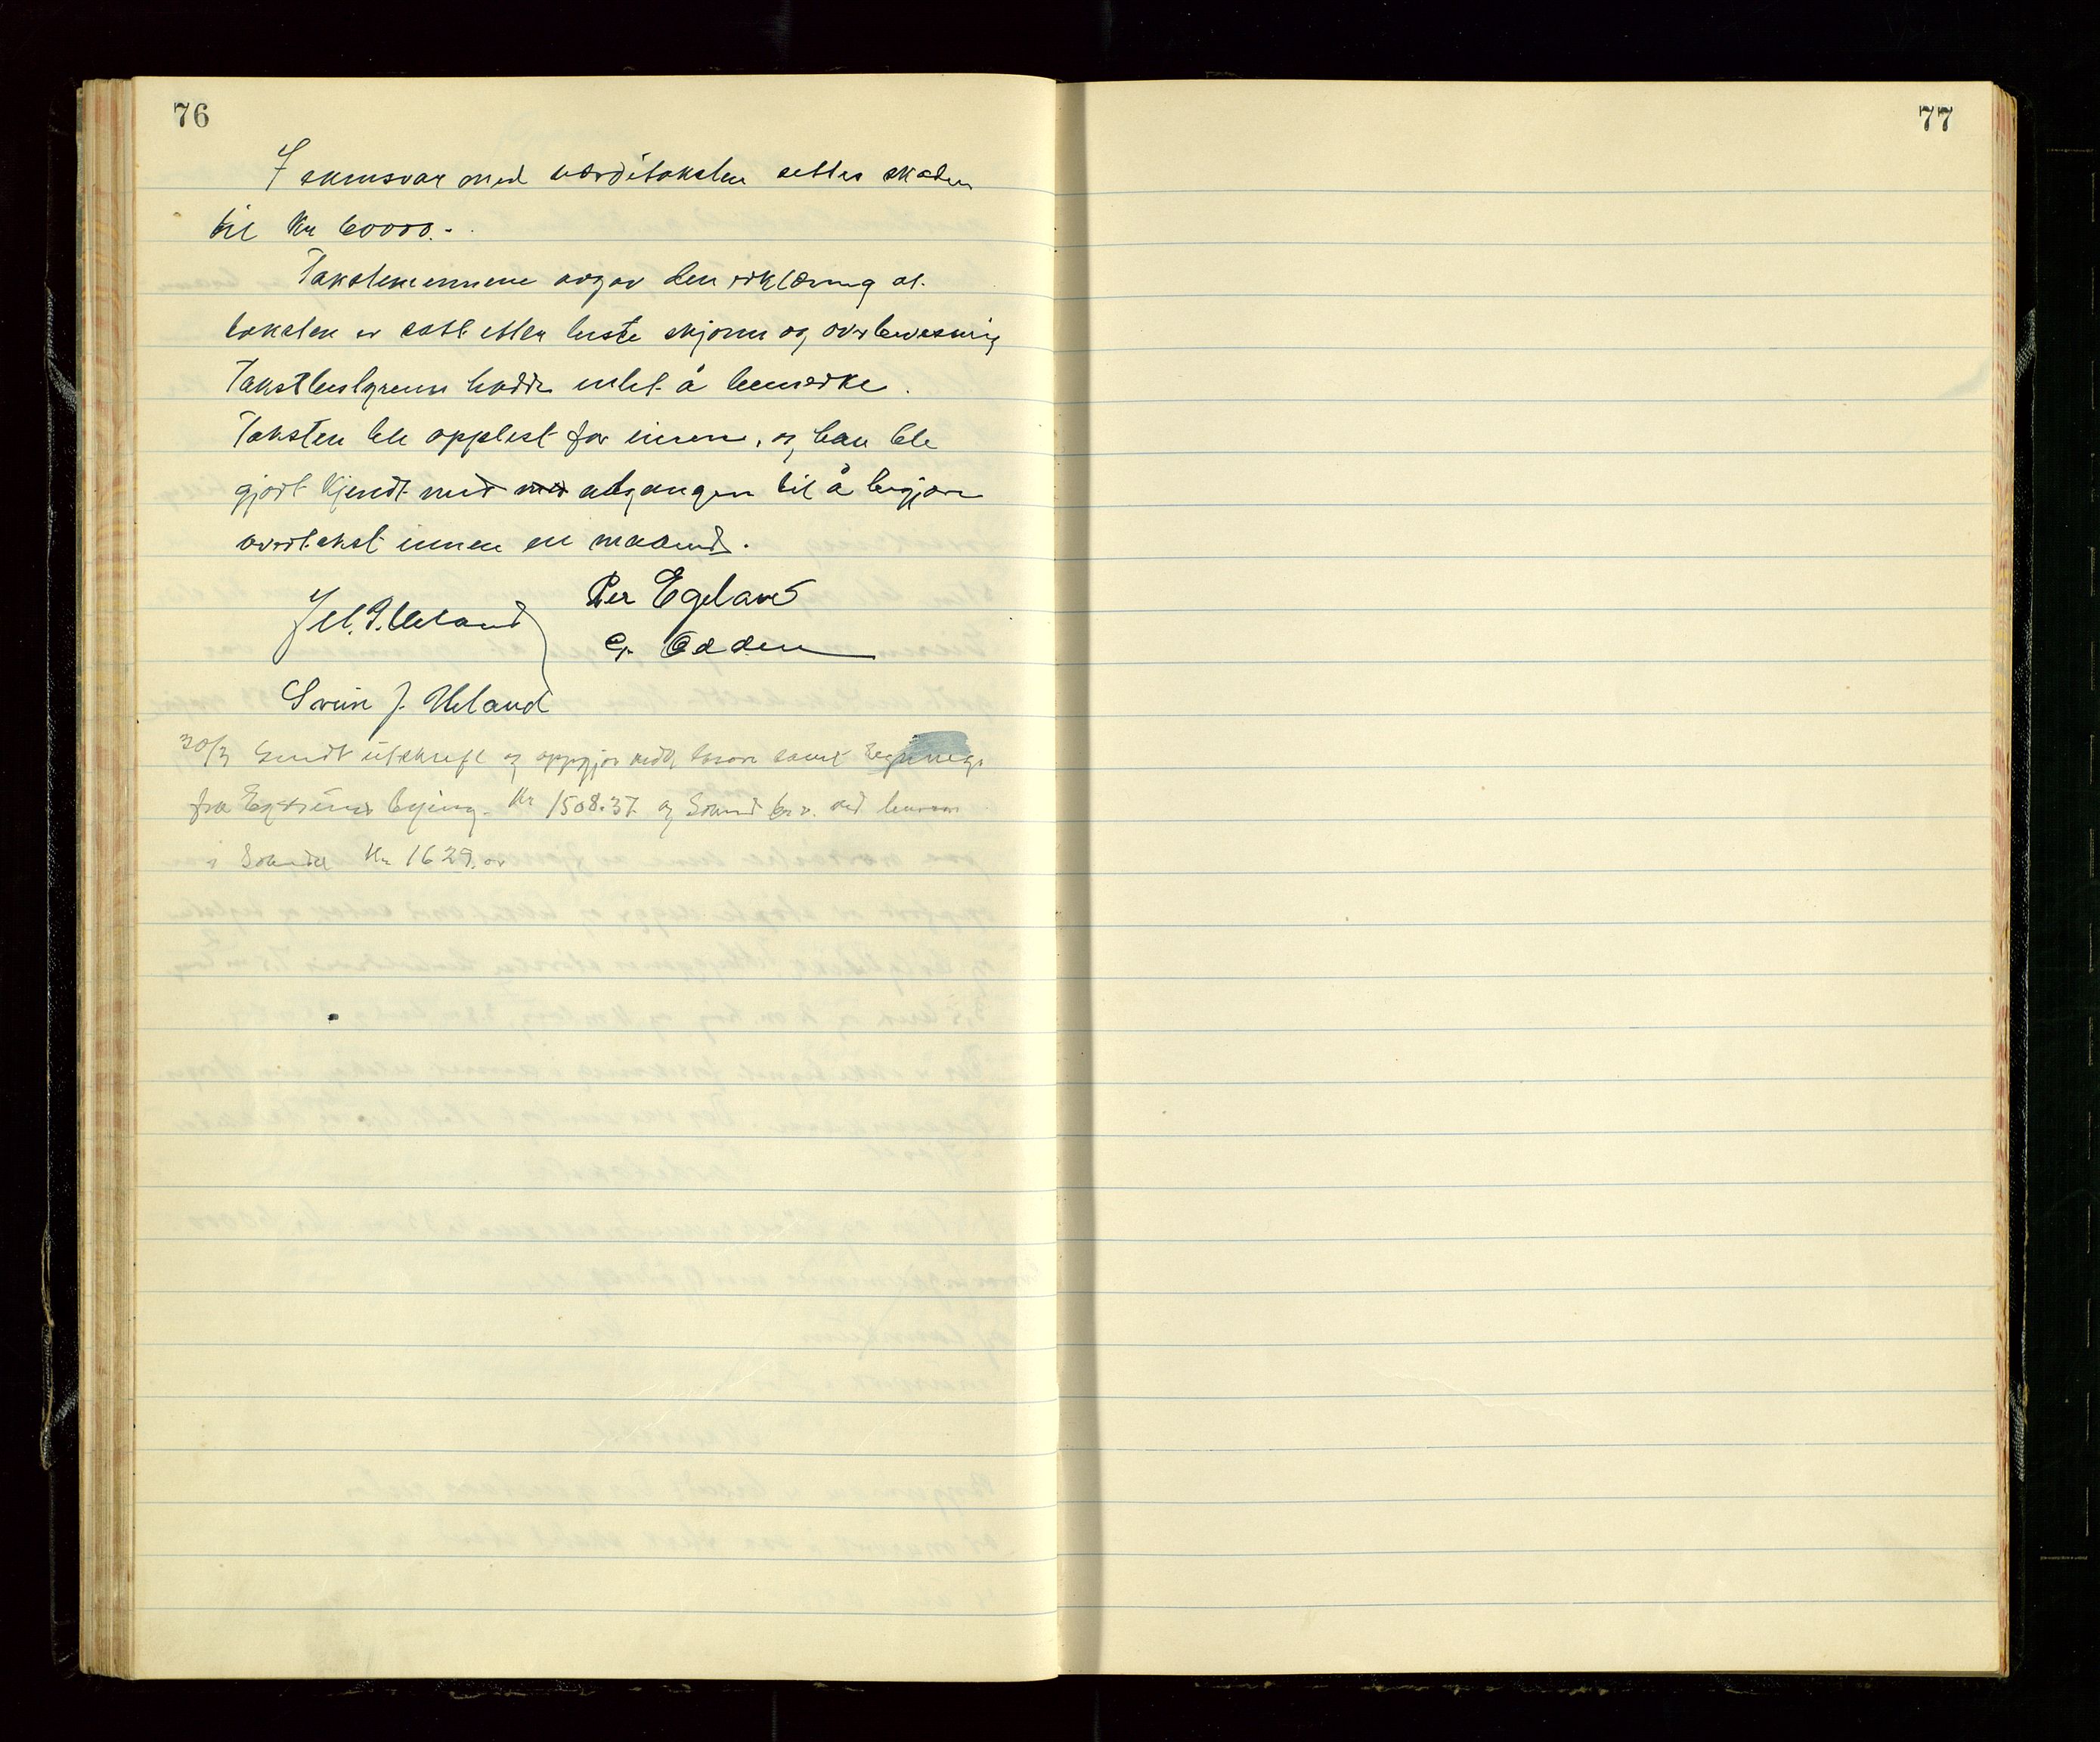 76
I samsvar med verditaksten settes skaden
til Kr 60000.-
Takstmennene avgav den erklæring at
taksten er satt etter beste skjønn og overbevisning
Takstbestyreren hadde intet å bemerke.
Taksten ble opplest for eieren, og han ble
gjort kjendt med med adgangen til å begjære
overtakst innen en maaned.
P. Ueland Per Egeland
Odden
Svein J. Ueland
30/3 Sendt utskrift og oppgjør samt
fra bygning. Kr 1508.37 og
i Kr 1629.
77